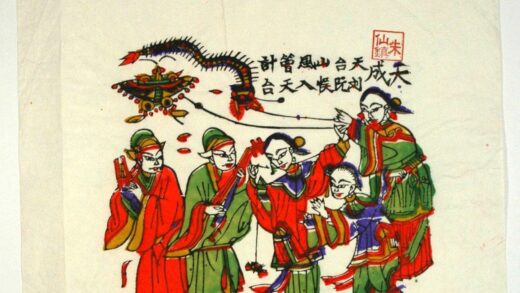 朱仙鎮
天成
天台山風計
刘阮悮入天台